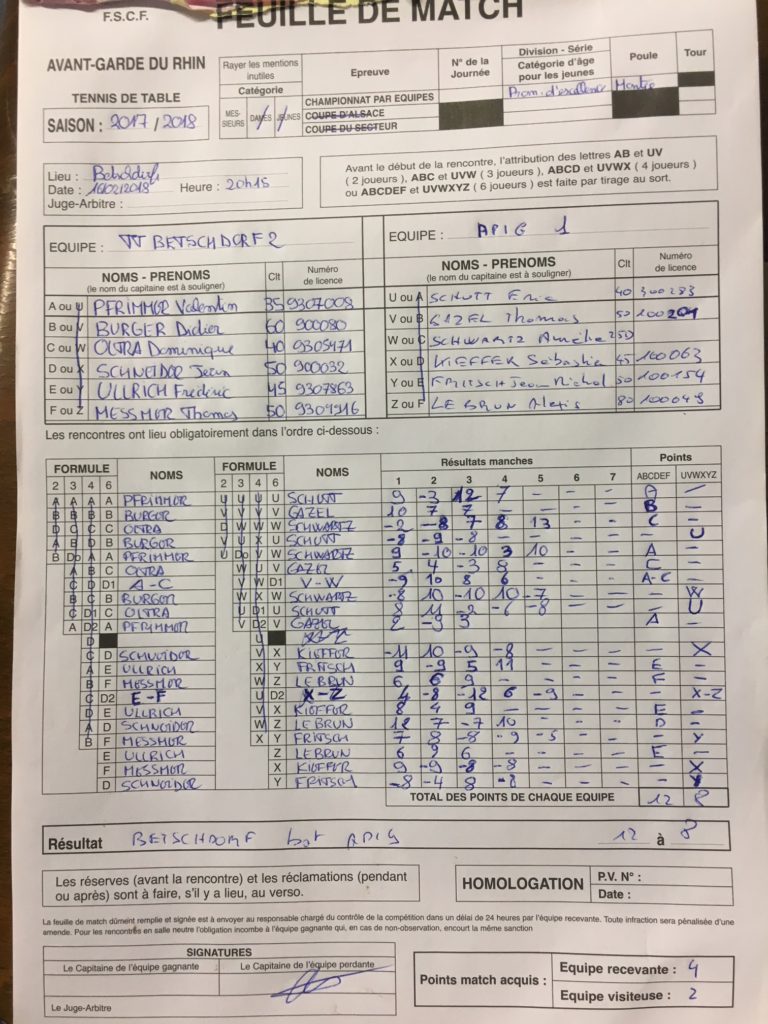 F.S.C.F.
FEUILLE DE MATCH
AVANT-GARDE DU RHIN
TENNIS DE TABLE
SAISON : 2017 / 2018
Rayer les mentions inutiles
Catégorie
MES-SIEURS DAMES JEUNES
Epreuve
CHAMPIONNAT PAR EQUIPES
COUPE D'ALSACE
COUPE DU SECTEUR
N° de la Journée
Division - Série
Catégorie d'âge pour les jeunes
Prom. d'excellence
Poule
Tour
Lieu :
Date : 16/02/2018 Heure : 20h15
Juge-Arbitre :
Avant le début de la rencontre, l'attribution des lettres AB et UV
( 2 joueurs ), ABC et UVW ( 3 joueurs ), ABCD et UVWX ( 4 joueurs )
ou ABCDEF et UVWXYZ ( 6 joueurs ) est faite par tirage au sort.
EQUIPE : TT BETSCHDORF 2
NOMS - PRENOMS Clt Numéro de licence
(le nom du capitaine est à souligner)
A ou U PFRIMMER Valentin 35 9307008
B ou V BURGER Didier 60 900080
C ou W OLTRA Dominique 40 9305471
D ou X SCHNEIDER Jean 50 900032
E ou Y ULLRICH Frédéric 45 9307863
F ou Z MESSMER Thomas 50 9304216
EQUIPE : APIG 1
NOMS - PRENOMS Clt Numéro de licence
(le nom du capitaine est à souligner)
U ou A SCHUTT Eric 40 300283
V ou B GAZEL Thomas 50 100201
W ou C SCHWARTZ Amélie 250
X ou D KIEFFER Sébastien 45 100063
Y ou E FRITSCH Jean Michel 50 100154
Z ou F LE BRUN Alexis 80 100049
Les rencontres ont lieu obligatoirement dans l'ordre ci-dessous :
FORMULE NOMS FORMULE NOMS Résultats manches Points
2 3 4 6 2 3 4 6 1 2 3 4 5 6 7 ABCDEF UVWXYZ
A A A A PFRIMMER U U U U SCHUTT 9 -3 12 7 - - - A -
B B B B BURGER V V V V GAZEL 10 7 7 - - - - B -
D C C C OLTRA D W W W SCHWARTZ -2 -8 7 8 13 - - C -
A B D B BURGER V V X U SCHUTT -8 -9 -8 - - - - - U
B Do A A PFRIMMER U Do V W SCHWARTZ 9 -10 -10 3 10 - - A -
A B C OLTRA W U V GAZEL 5 4 -3 8 - - - C -
C D D1 A-C V W D1 V-W -9 10 8 6 - - - A-C -
B C B BURGER W X W SCHWARTZ -8 10 -10 -10 -7 - - - W
C D1 C OLTRA U D1 U SCHUTT 8 11 -2 -6 -8 - - - U
A D2 A PFRIMMER V D2 V GAZEL 2 -9 3 A -
D U
C D SCHNEIDER V X KIEFFER -11 10 -9 -8 - - - - X
A E ULLRICH X Y FRITSCH 9 -9 5 11 - - - E -
B F MESSMER W Z LE BRUN 6 6 9 - - - - F -
C D2 E-F U D2 X-Z 4 -8 -12 6 -9 - - - X-Z
D E ULLRICH V X KIEFFER 8 4 9 - - - - E -
A D SCHNEIDER W Z LE BRUN 12 7 -7 10 - - - D -
B F MESSMER X Y FRITSCH 7 8 -8 -9 -5 - - - Y
E ULLRICH Z LE BRUN 6 9 6 - - - - E -
F MESSMER X KIEFFER 9 -9 -8 -8 - - - - X
D SCHNEIDER Y FRITSCH -8 -4 8 -8 - - - - Y
TOTAL DES POINTS DE CHAQUE EQUIPE 12 8
Résultat BETSCHDORF bat APIG 12 à 8
Les réserves (avant la rencontre) et les réclamations (pendant
ou après) sont à faire, s'il y a lieu, au verso.
HOMOLOGATION
P.V. N° :
Date :
La feuille de match dûment remplie et signée est à envoyer au responsable chargé du contrôle de la compétition dans un délai de 24 heures par l'équipe recevante. Toute infraction sera pénalisée d'une
amende. Pour les rencontres en salle neutre l'obligation incombe à l'équipe gagnante qui, en cas de non-observation, encourt la même sanction
SIGNATURES
Le Capitaine de l'équipe gagnante Le Capitaine de l'équipe perdante
Le Juge-Arbitre
Points match acquis :
Equipe recevante : 4
Equipe visiteuse : 2